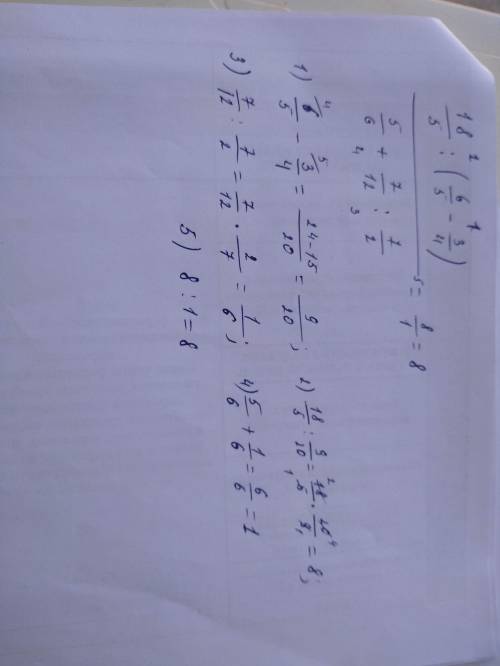 18/5 : (6/5 - 3/4)
5/6 + 7/12 : 7/2 = 8/1 = 8
1) 6/5 - 3/4 = 24-15/20 = 9/20; 2) 18/5 : 9/20 = 18/5 · 20/9 = 8;
3) 7/12 : 7/2 = 7/12 · 2/7 = 1/6; 4) 5/6 + 1/6 = 6/6 = 1
5) 8 : 1 = 8